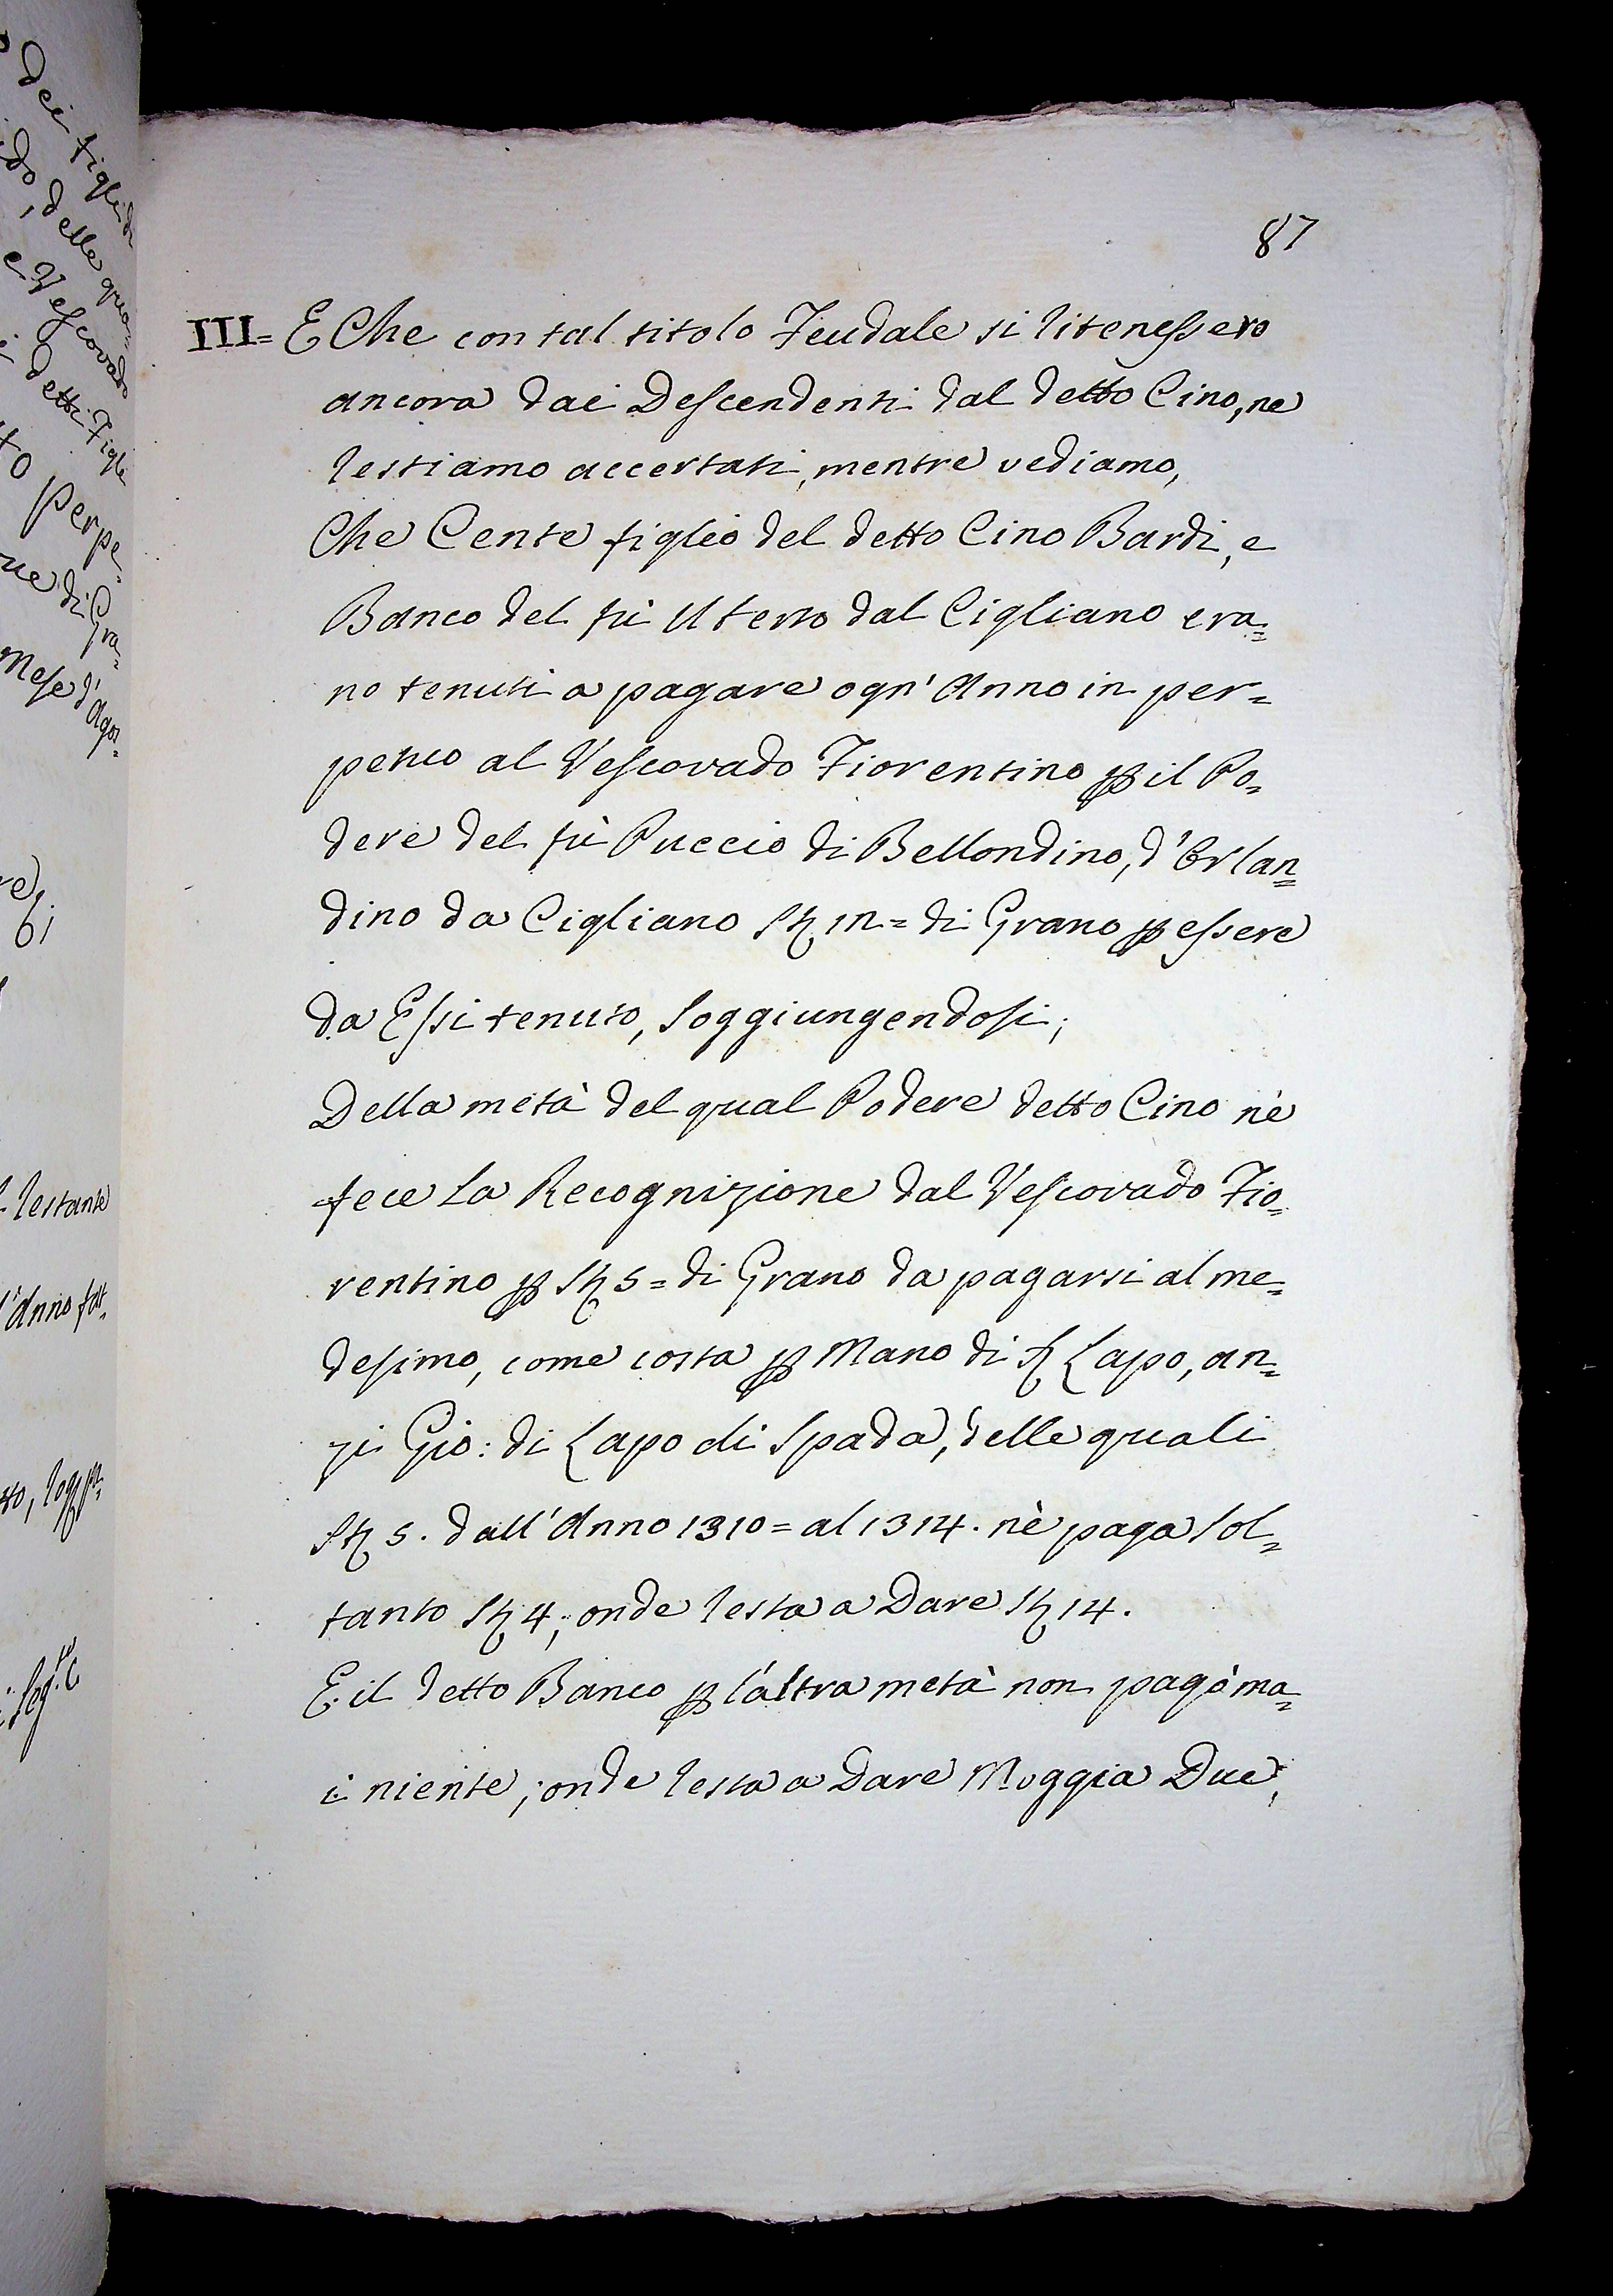 dei figli di
do, delle qua=
e Vescovado
detti Figli
to perpe=
ne di Gra=
Mese d'Agos=
61
restante
l'Anno
87
III= E Che con tal titolo Feudale si ritenessero
ancora dai Descendenti dal detto Cino, ne
restiamo accertati, mentre vediamo,
Che Cente figlio del detto Cino Bardi, e
Banco del fù dal Cigliano era=
no tenuti a pagare ogn' Anno in per=
petuo al Vescovado Fiorentino p il Po=
dere del fù Puccio di Bellondino, d'Orlan=
dino da Cigliano St di Grano p essere
da Essi tenuto, soggiungendosi;
Della metà del qual Podere detto Cino nè
fece la Recognizione dal Vescovado Fio=
rentino p St 5= di Grano da pagarsi al me=
desimo, come costa p Mano di S Lapo, an=
zi Gio: di Lapo di Spada, delle quali
St 5. dall'Anno 1310= al 1314. nè paga sol=
tanto St 4; onde resta a Dare St 14.
E il detto Banco p l'altra metà non pagò ma=
i niente; onde resta a Dare Moggia Due;